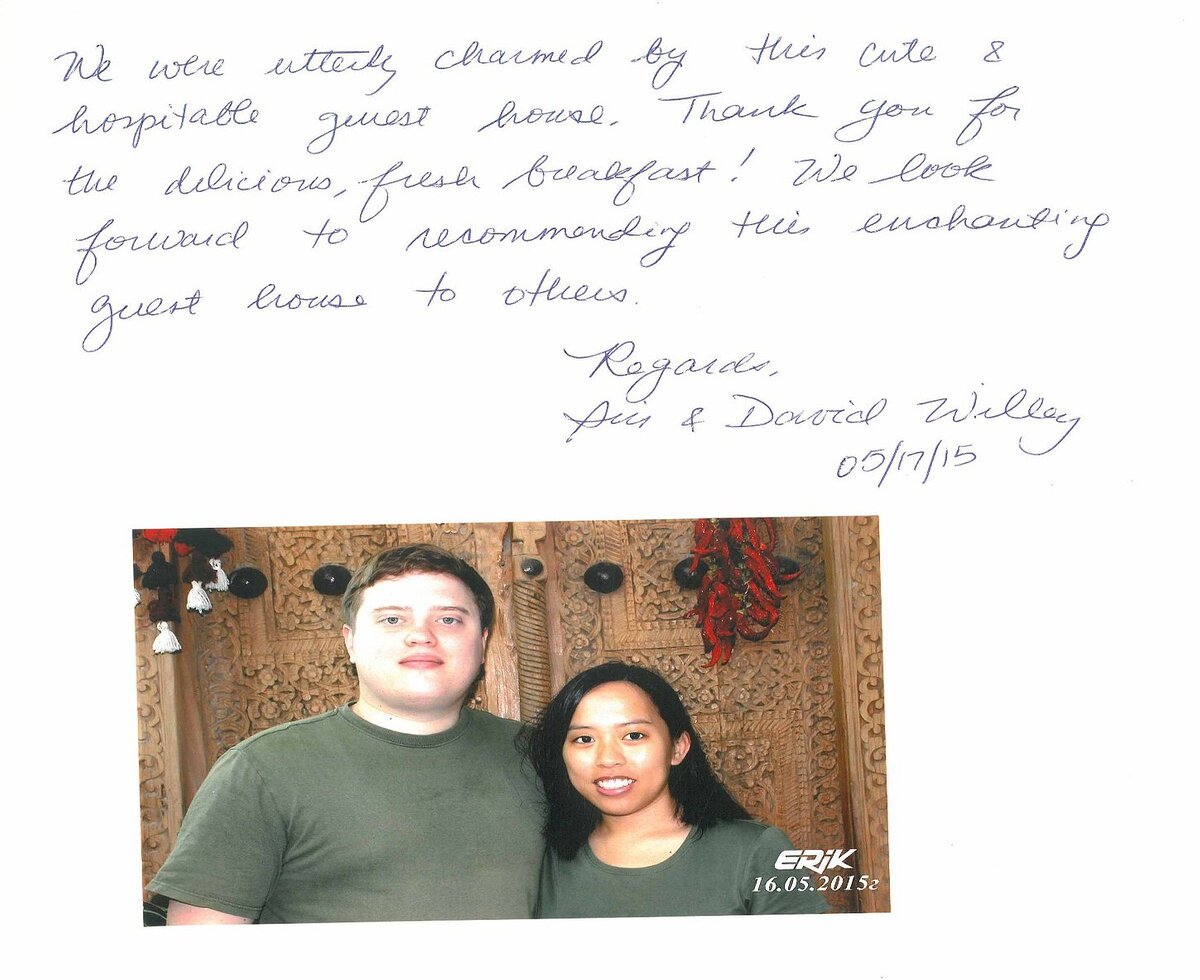 We were utterly charmed by this cute &
hospitable guest house. Thank you for
the delicious, fresh breakfast! We look
forward to recommending this enchanting
guest house to others.
Regards,
& David Willey
05/17/15
ERiK
16.05.2015г